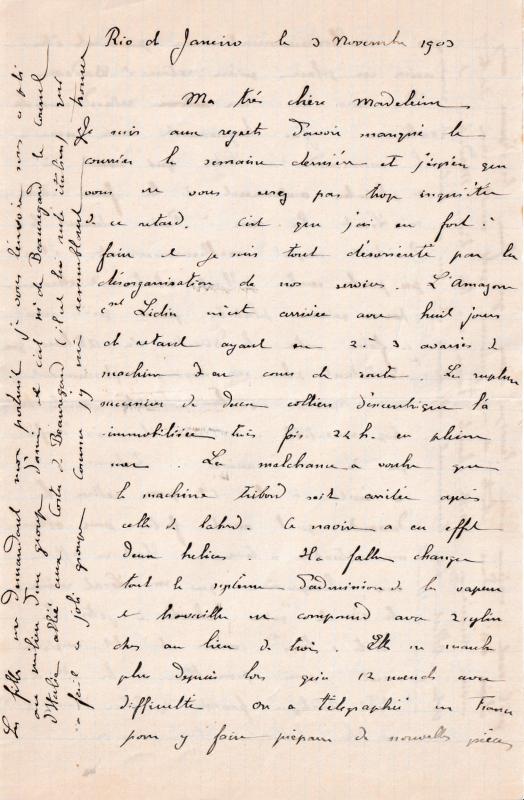 Rio de Janeiro le 3 Novembre 1903
Ma très chère Madeleine
Je suis aux regrets d'avoir manqué le
courrier la semaine dernière et j'espère que
vous ne vous serez pas trop inquiétée
de ce retard. C'est que j'ai eu fort à
faire et je suis tout désorienté par la
désorganisation de nos services. L'Amazone
Ct Lidin n'est arrivée avec huit jours
de retard ayant eu 2 à 3 avaries de
machine en cours de route. La rupture
successive de deux colliers d'excentrique l'a
immobilisée trois fois 24 h. en pleine
mer. La malchance a voulu que
la machine tribord soit arrêtée après
celle de babord. Ce navire a en effet
deux hélices. Il a fallu changer
tout le système d'admission de la vapeur
et travailler en compound avec 2 cylin
dres au lieu de trois. Elle ne marche
plus depuis lors qu'à 12 noeuds avec
difficulté. On a télégraphié en France
pour y faire préparer de nouvelles pièces
La fille me demandant mon portrait je vous l'envoie
au milieu d'un groupe d'amis
d'Italie allié aux Costa de Beauregard
a fait ce joli groupe comme j'y suis ressemblant